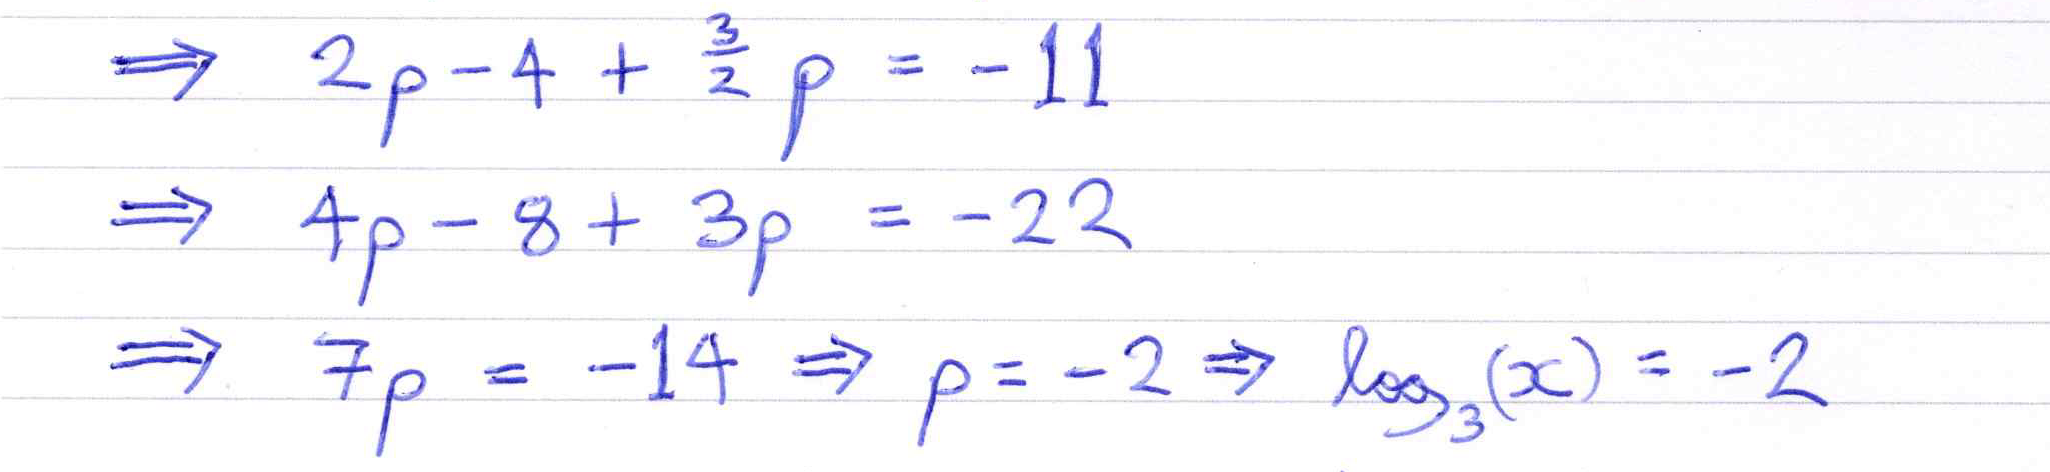 ⇒ 2p - 4 + 3/2 p = -11
⇒ 4p - 8 + 3p = -22
⇒ 7p = -14 ⇒ p = -2 ⇒ log₃(x) = -2